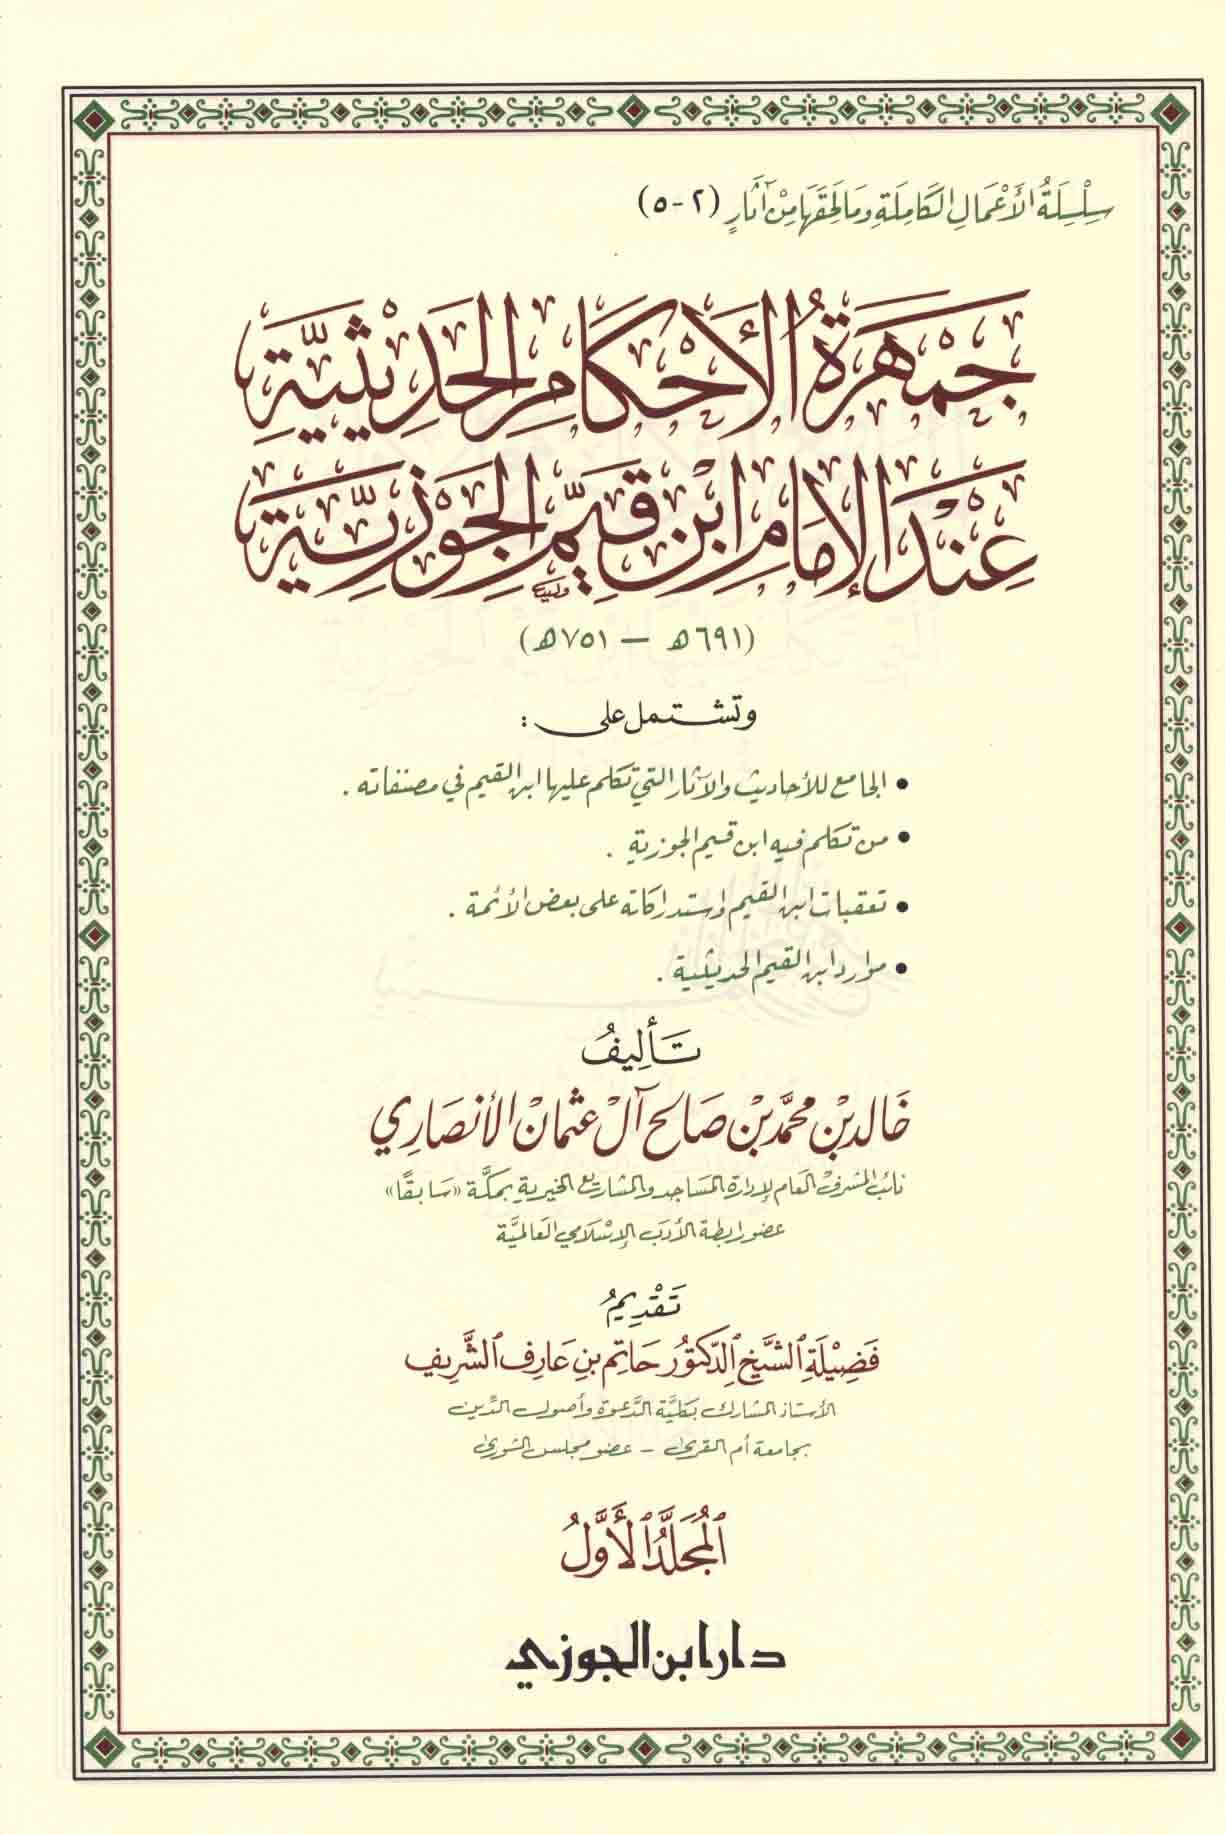 سِلْسِلَةُ الأَعْمَالِ الكَامِلَةِ وَمَا لَحِقَهَا مِنْ آثَارٍ (٢-٥)
جَمْهَرَةُ الأَحْكَامِ الحَدِيْثِيَّةِ
عِنْدَ الإِمَامِ ابْنِ قَيِّمِ الجَوْزِيَّةِ
(٦٩١هـ — ٧٥١هـ)
وتشتمل على :
• الجامع للأحاديث والآثار التي تكلم عليها ابن القيم في مصنفاته .
• من تكلم فيه ابن قيم الجوزية .
• تعقبات ابن القيم واستدراكاته على بعض الأئمة .
• موارد ابن القيم الحديثية .
تَأْلِيفُ
خَالد بْن محمَّد بْن صَالح آل عثمان الأنصَاري
نائب المشرف العَام لإدارة المسَاجد والمشاريع الخيرية بمكَّة «سَابقًا»
عضو رابطة الأدَب الإسْلَامي العَالميَّة
تَقْدِيمُ
فَضِيْلَةِ ٱلشَّيْخ ٱلدِّكتُور حَاتِم بن عَارِف ٱلشَّرِيف
الأستاذ المشارك بكليَّة الدَّعوة وأصول الدِّين
بجامعة أم القرى - عضو مجلس الشورى
ٱلمُجَلَّدُ ٱلأَوَّلُ
دار ابن الجوزي